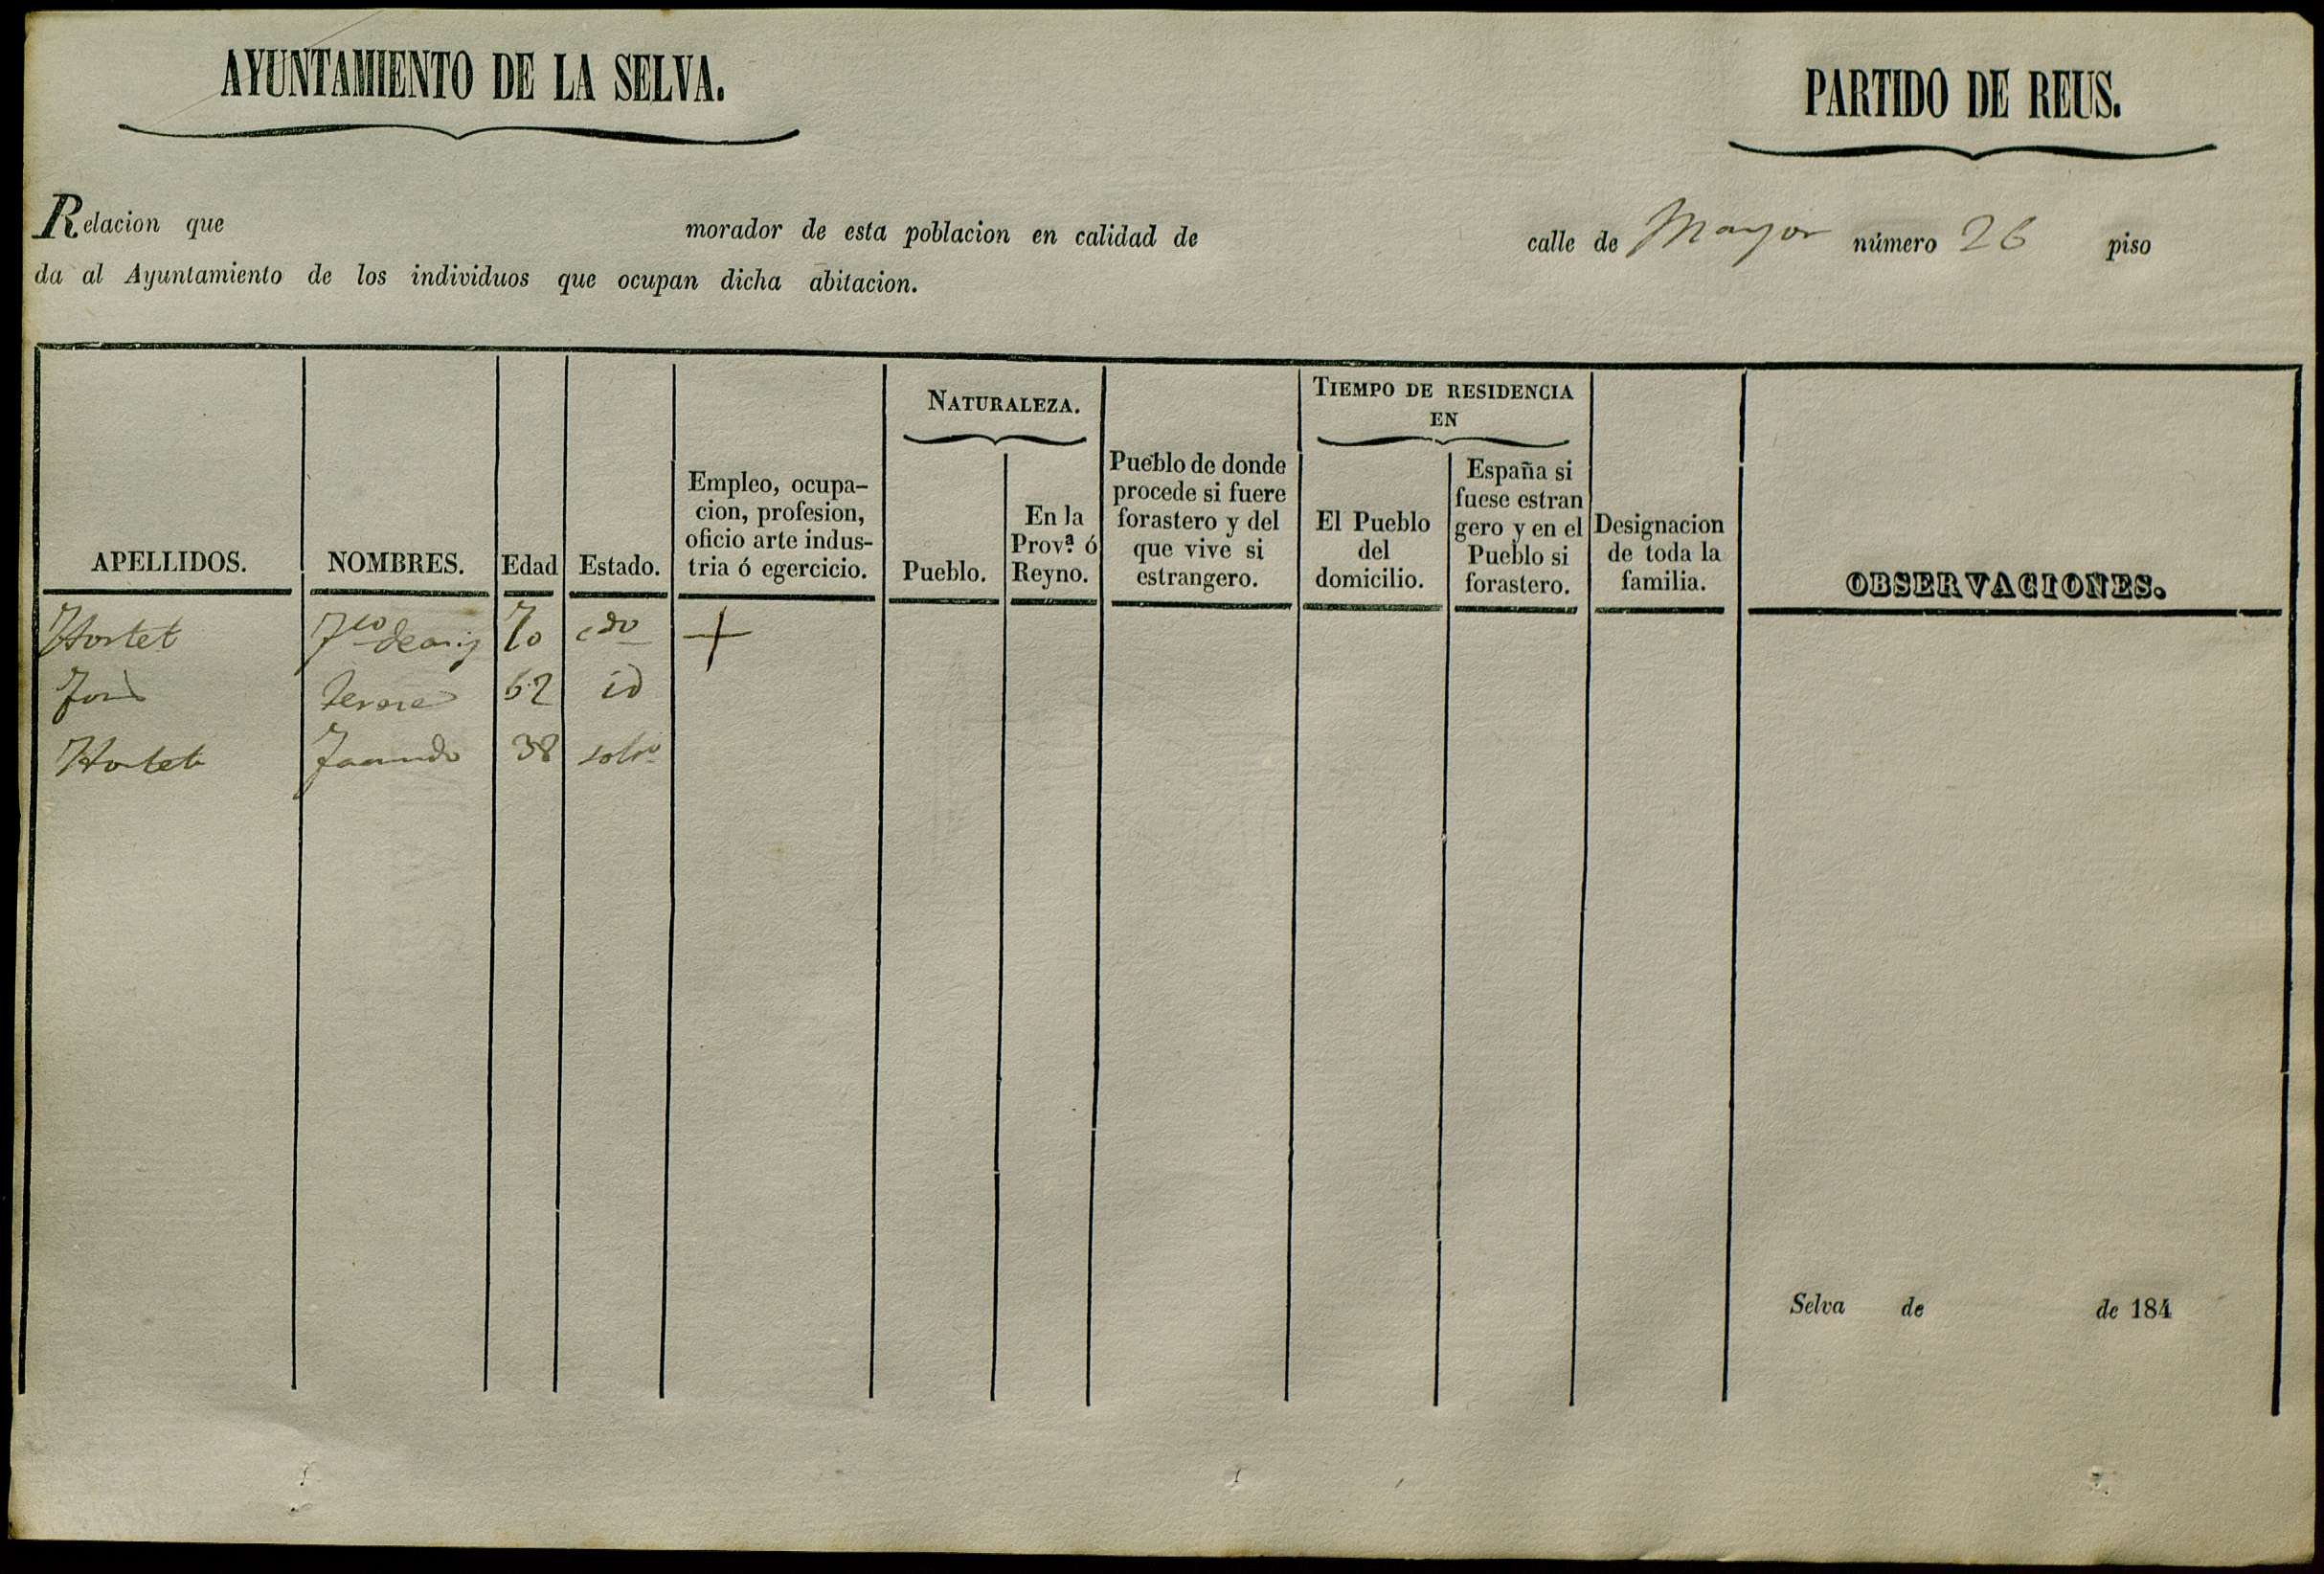 AYUNTAMIENTO DE LA SELVA.
PARTIDO DE REUS.
Relacion que morador de esta poblacion en calidad de calle de Mayor número 26 piso
da al Ayuntamiento de los individuos que ocupan dicha abitacion.
APELLIDOS.
NOMBRES.
Edad
Estado.
Empleo, ocupa-
cion, profesion,
oficio arte indus-
tria ó egercicio.
NATURALEZA.
Pueblo.
En la
Prov.ª ó
Reyno.
Pueblo de donde
procede si fuere
forastero y del
que vive si
estrangero.
TIEMPO DE RESIDENCIA
EN
El Pueblo
del
domicilio.
España si
fuese estran
gero y en el
Pueblo si
forastero.
Designacion
de toda la
familia.
OBSERVACIONES.
Hortet 70 cdo +
62 id
Hortet 38
Selva de de 184